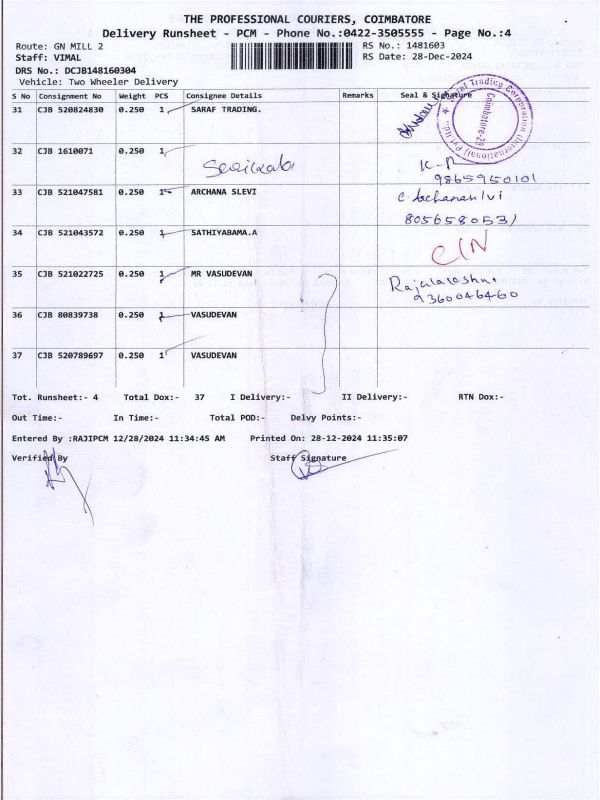 THE PROFESSIONAL COURIERS, COIMBATORE
Delivery Runsheet - PCM - Phone No.:0422-3505555 - Page No.:4
Route: GN MILL 2 RS No.: 1481603
Staff: VIMAL RS Date: 28-Dec-2024
DRS No.: DCJB148160304
Vehicle: Two Wheeler Delivery
S No Consignment No Weight PCS Consignee Details Remarks Seal & Signature
31 CJB 520824830 0.250 1 SARAF TRADING.
Saraf Trading Corporation (International) Pvt Ltd.
Coimbatore-29
32 CJB 1610071 0.250 1 K-P
9865950101
33 CJB 521047581 0.250 1 ARCHANA SLEVI
8056580531
34 CJB 521043572 0.250 1 SATHIYABAMA.A
35 CJB 521022725 0.250 1 MR VASUDEVAN
9360046460
36 CJB 80839738 0.250 1 VASUDEVAN
37 CJB 520789697 0.250 1 VASUDEVAN
Tot. Runsheet:- 4 Total Dox:- 37 I Delivery:- II Delivery:- RTN Dox:-
Out Time:- In Time:- Total POD:- Delvy Points:-
Entered By :RAJIPCM 12/28/2024 11:34:45 AM Printed On: 28-12-2024 11:35:07
Verified By Staff Signature